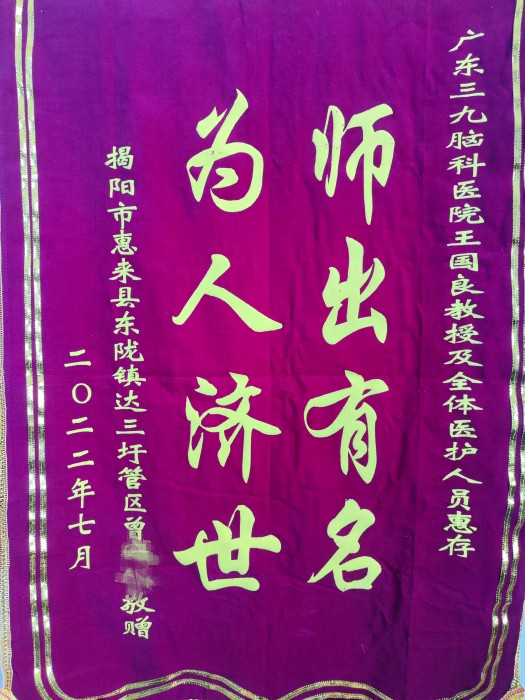 广东三九脑科医院王国良教授及全体医护人员惠存
师出有名
为人济世
揭阳市惠来县东陇镇达三圩管区曾 敬赠
二〇二二年七月